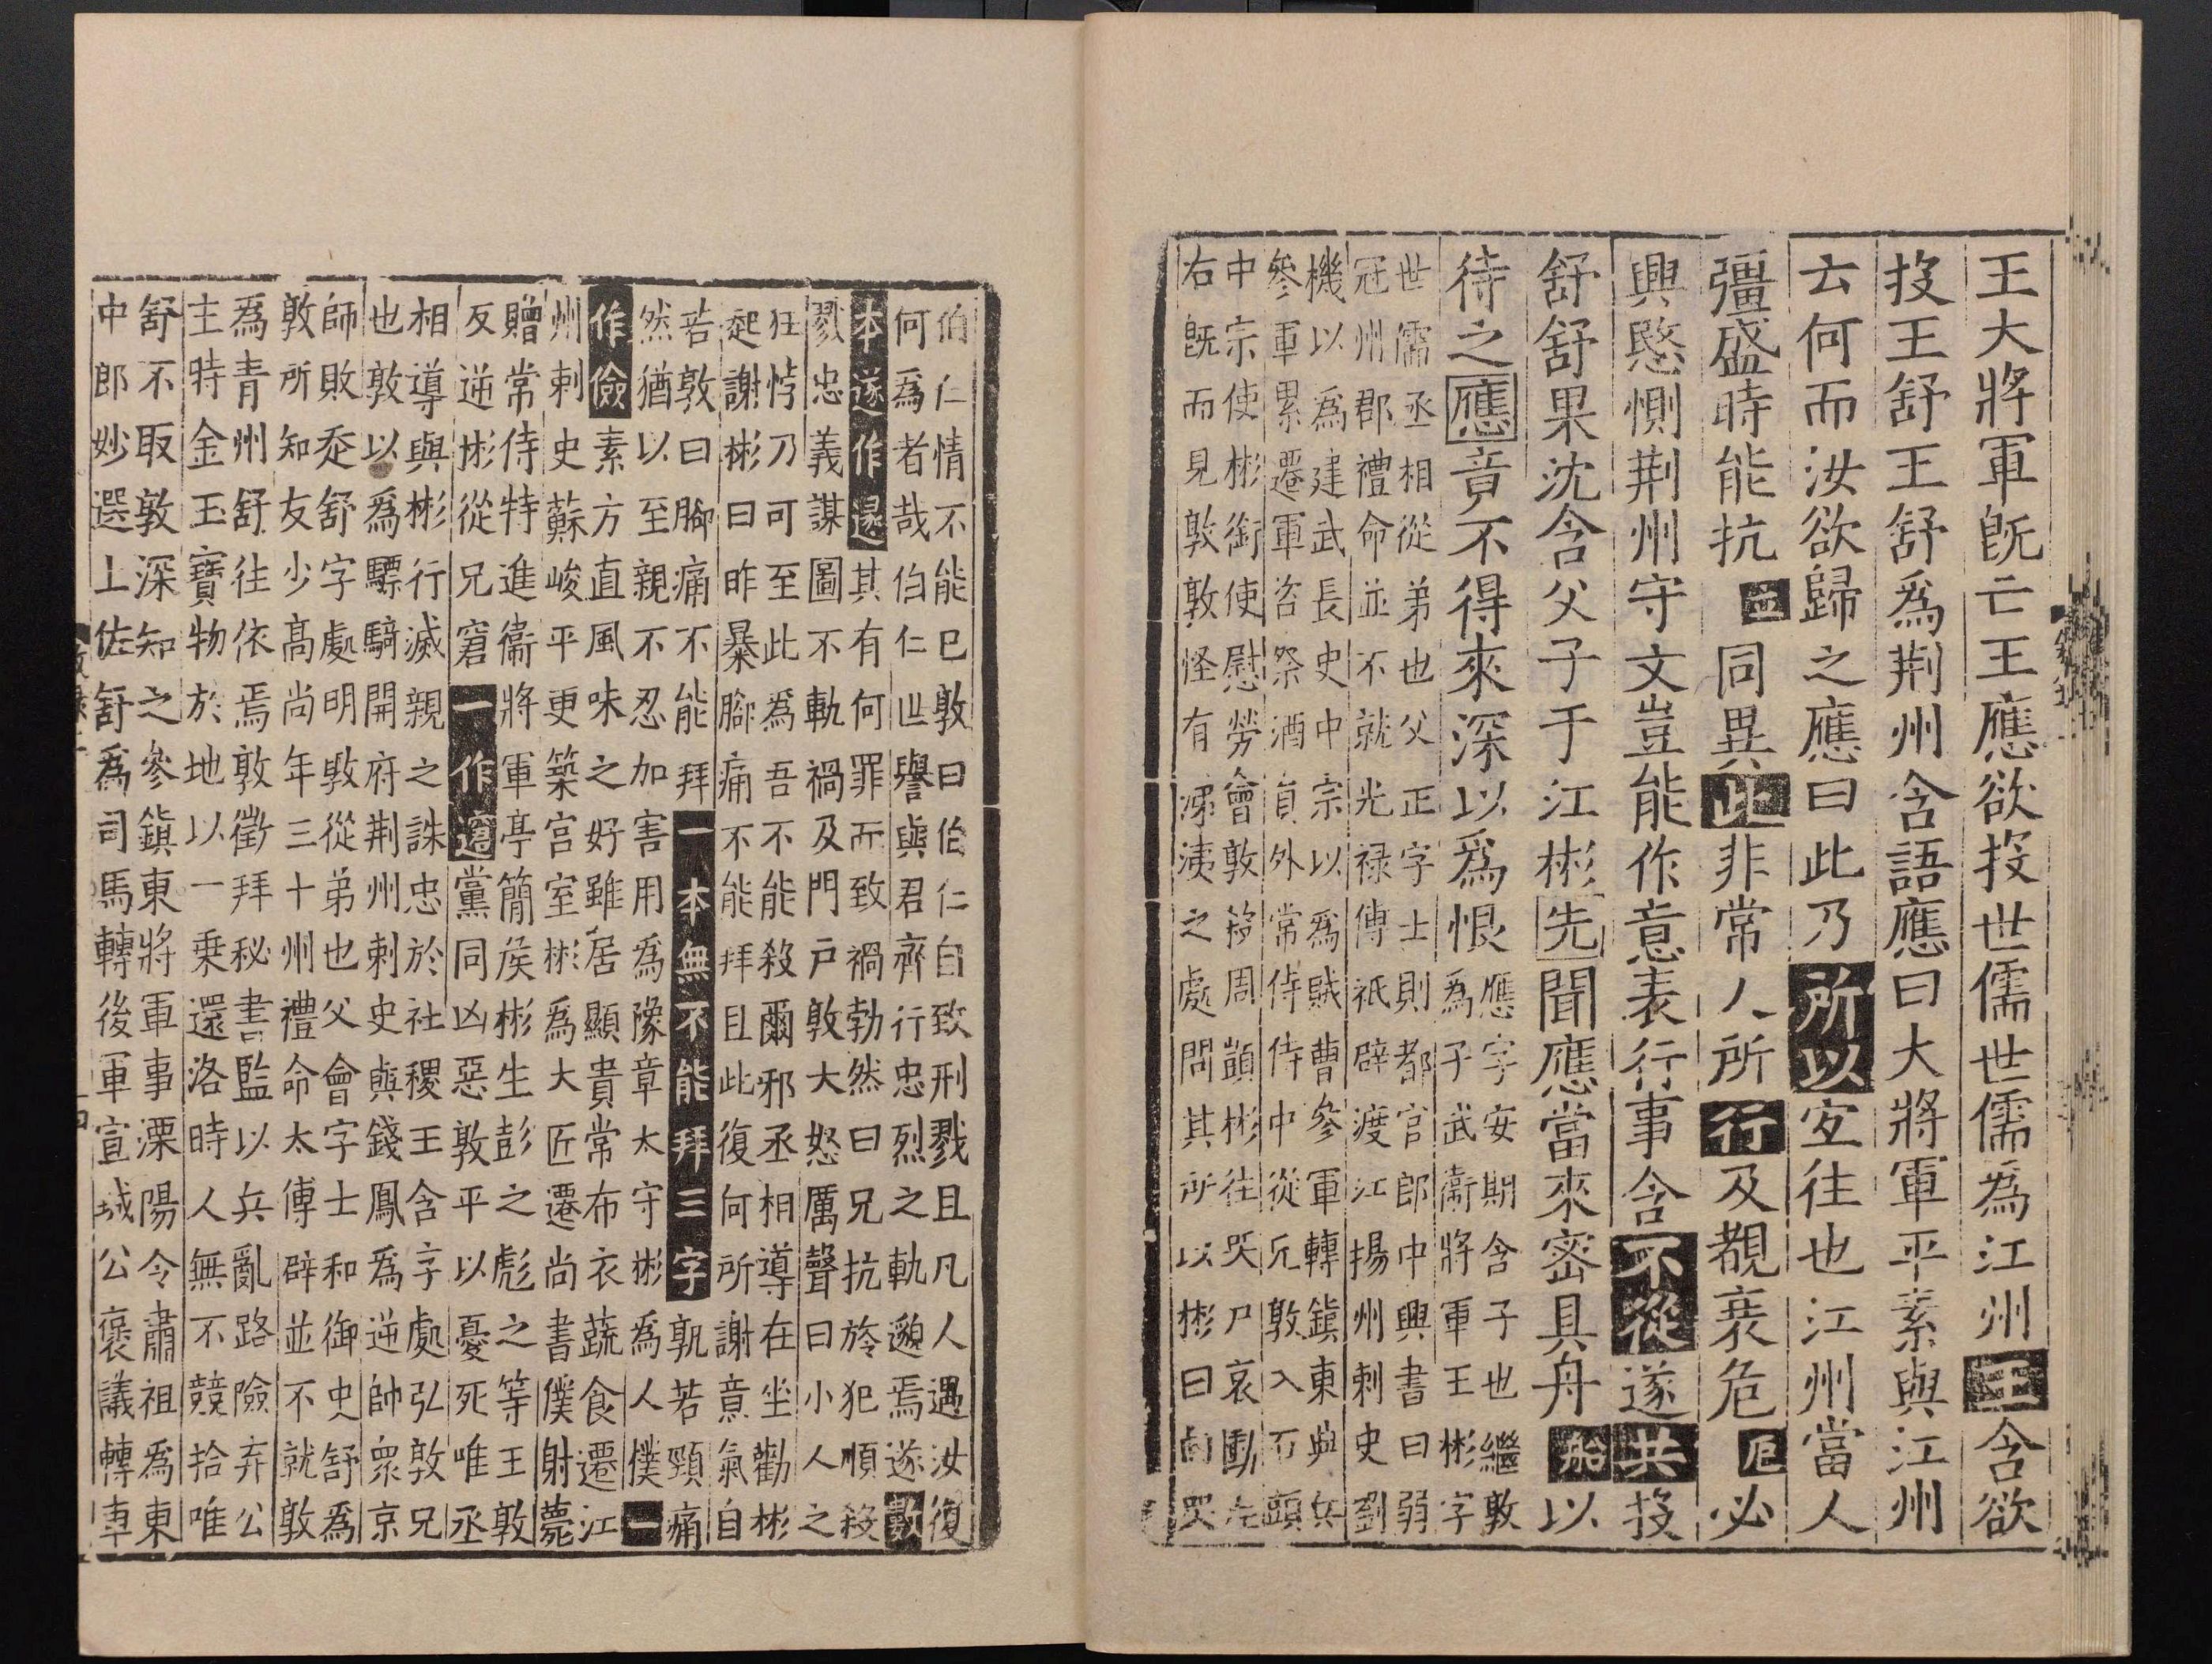 王大將軍旣亡王應欲投世儒世儒為江州王含欲
投王舒王舒爲荆州含語應曰大將軍平素與江州
云何而汝欲歸之應曰此乃所以冝往也江州當人
彊盛時能抗並同異此非常人所行及覩衰危厄必
興愍惻荆州守文豈能作意表行事含不從遂共投
舒舒果沈含父子于江彬先聞應當來密具舟船以
待之應竟不得來深以為恨應字安期含子也繼敦
為子武衞將軍王彬字
世儒丞相從弟也父正字士則都官郎中興書曰弱
冠州郡禮命並不就光禄傅祗辟渡江揚州刺史劉
機以爲建武長史中宗以爲賊曹參軍轉鎭東與兵
參軍累遷軍咨祭酒貟外常侍侍中從兄敦入石頭
中宗使彬銜使慰勞會敦殺周顗彬往哭尸哀慟左
右旣而見敦敦怪有涕洟之處問其所以彬曰向哭
伯仁情不能已敦曰伯仁自致刑戮且凡人遇汝復
何爲者哉伯仁世譽與君齊行忠烈之軌邈焉遂數
本遂作遑其有何罪而致禍勃然曰兄抗於犯順殺
戮忠義謀圖不軌禍及門戸敦大怒厲聲曰小人之
狂悖乃可至此爲吾不能殺爾邪丞相導在坐勸彬
起謝彬曰昨暴脚痛不能拜且此復何所謝意氣自
若敦曰脚痛不能拜一本無不能拜三字孰若頸痛
然猶以至親不忍加害用爲豫章太守彬為人僕一
作儉素方直風味之好雖居顯貴常布衣蔬食遷江
州刺史蘇峻平更築宮室彬爲大匠遷尚書僕射薨
贈常侍特進衞將軍亭簡侯彬生彭之彪之等王敦
反逆彬從兄窘一作遵黨同凶惡敦平以憂死唯丞
相導與彬行滅親之誅忠於社稷王含字處弘敦兄
也敦以爲驃騎開府荆州刺史與錢鳳爲逆帥衆京
師敗奔舒字處明敦從弟也父會字士和御史舒爲
敦所知友少高尚年三十州禮命太傅辟並不就敦
爲青州舒往依焉敦徵拜秘書監以兵亂路險弃公
主時金玉寶物於地以一乗還洛時人無不競拾唯
舒不取敦深知之參鎭東將軍事溧陽令肅祖爲東
中郎妙選上佐舒爲司馬轉後軍宣城公裒議轉車